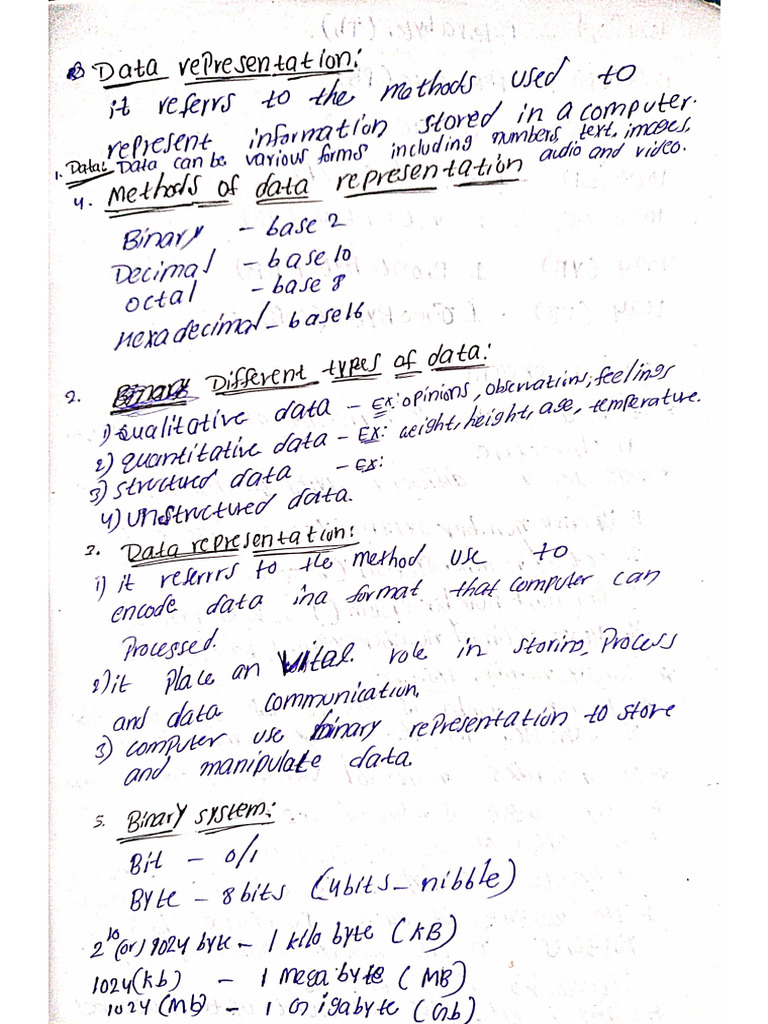 Data representation:
it referrs to the methods used to
represent information stored in a computer.
1. Data: Data can be various forms including numbers, text, images,
audio and video.
4. Methods of data representation
Binary - base 2
Decimal - base 10
octal - base 8
Hexadecimal - base 16
2. Binary Different types of data:
1) Qualitative data - Ex: opinions, observations, feelings
2) quantitative data - Ex: weight, height, age, temperature.
3) structured data - Ex:
4) Unstructured data.
3. Data representation:
1) it referrs to the method use to
encode data in a format that computer can
Processed.
2) it place an vital role in storing, Process
and data communication.
3) computer use binary representation to store
and manipulate data.
5. Binary system:
Bit - 0/1
Byte - 8 bits (4bits - nibble)
2^10 (or) 1024 byte - 1 kilo byte (KB)
1024 (kb) - 1 Mega byte (MB)
1024 (Mb) - 1 Gigabyte (Gb)